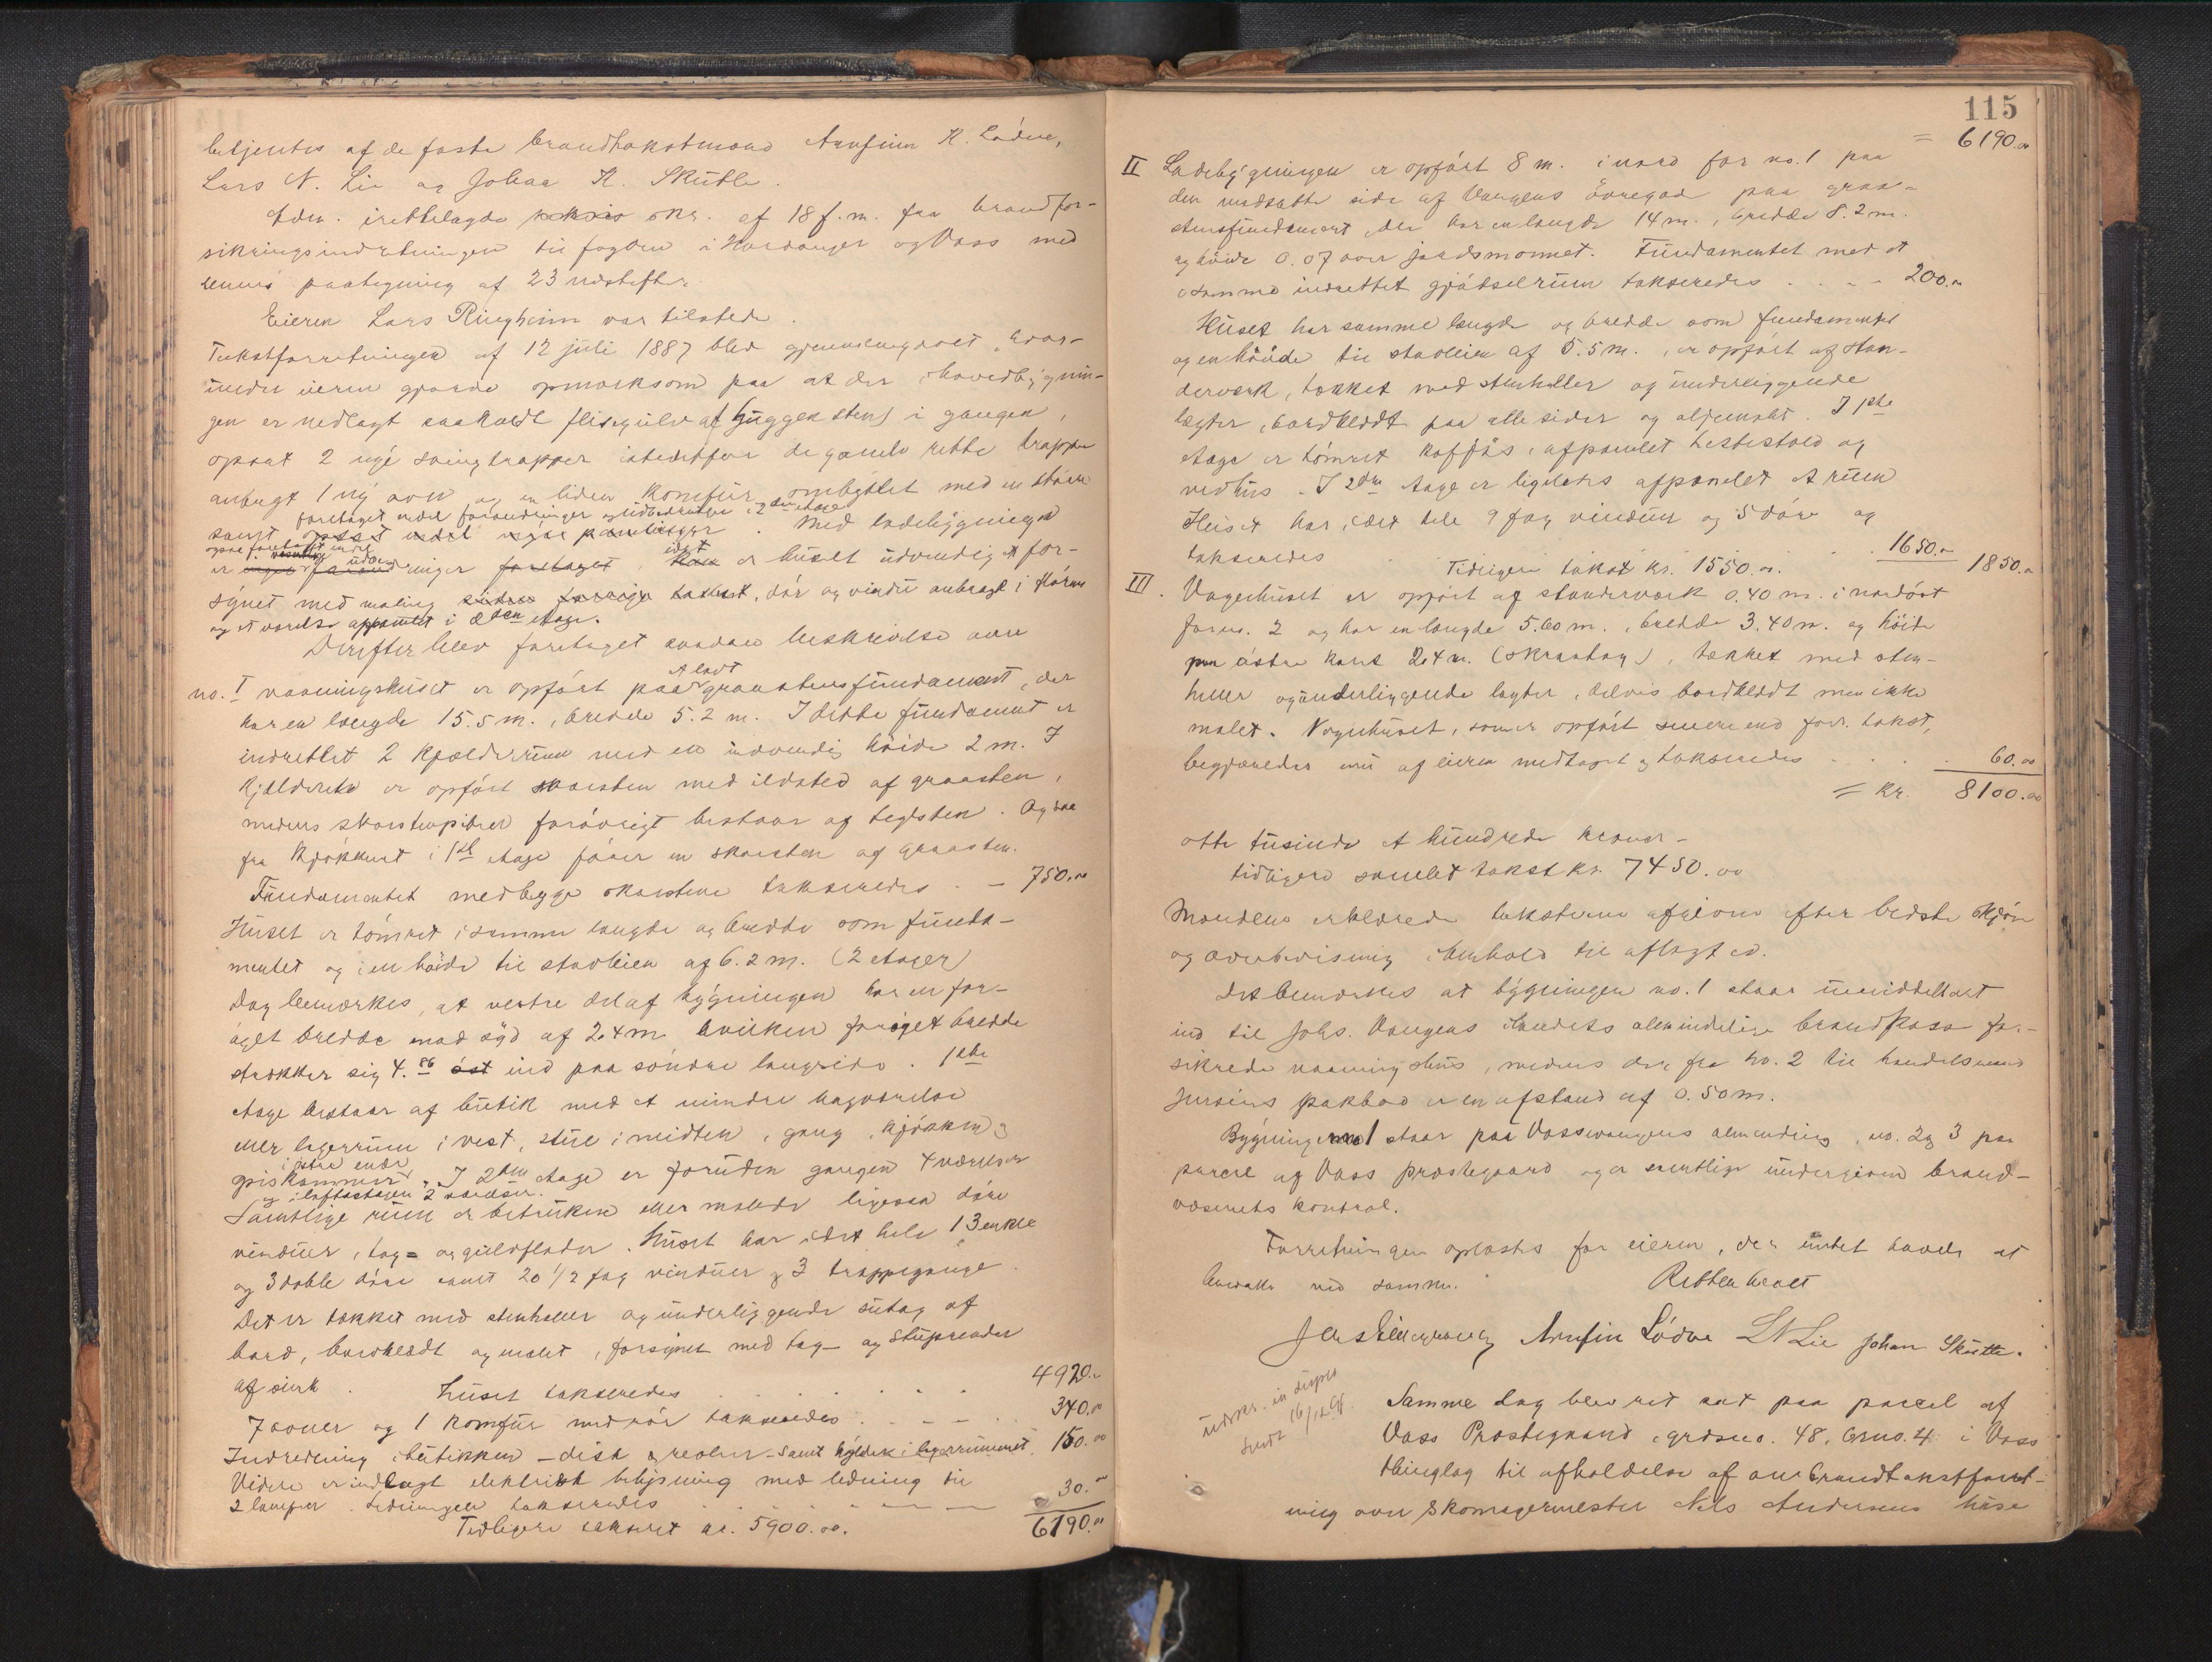 betjentes af de faste brandtakstmænd Arnfinn K. Lødve,
Lars N. Lie og Johan K. Skutle.
Adm. irettelagde skr. af 18 f.m. fra brandfor-
sikringsindretningen til fogden i Hardanger og Voss med
dennes paategning af 23 næstefter.
Eieren Lars Ringheim var tilstede.
Takstforretningen af 12 juli 1887 blev gjennemgaaet, hvor-
under eieren gjorde opmærksom paa at der i hovedbygnin-
gen er nedlagt saakaldt flisegulv (af huggen sten) i gangen,
opsat 2 nye svingtrapper istedetfor de gamle rette trapper
anbragt 1 ny ovn og en liden komfur ombyttet med en større
foretaget endel forandringer og udbedringer i 2den etage
samt opsat endel nye paneliner. Med ladebygningen
er foretaget endel forandringer. Idet er huset udvendig for-
synet med maling, dør og vindu anbragt i
og et værelse afpanelet i 2den etage.
Derefter blev foretaget saadan beskrivelse over
no. I vaaningshuset er opført paa et lavt graastensfundament, der
har en længde 15.5 m., bredde 5.2 m. I dette fundament er
indrettet 2 kjælderrum med en indvendig høide 2 m. I
kjælderen er opført skorsten med ildsted af graasten,
medens skorstenspiben forøvrigt bestaar af teglsten. Ogsaa
fra kjøkkenet i 1ste etage fører en skorsten af graasten.
Fundamentet med begge skorstene takseredes . - 750.00
Huset er tømret i samme længde og bredde som funda-
mentet og i en høide til stavleien af 6.2 m. (2 etager)
Dog bemærkes, at vestre del af bygningen har en for-
øget bredde mod syd af 2.4 m hvilken forøget bredde
strækker sig 4.86 øst ind paa søndre langside. 1ste
etage bestaar af butik med et mindre bagværelse
eller lagerrum i vest, stue i midten, gang, kjøkken og
spiskammer i østre ende. I 2den etage er foruden gangen 4 værelser
og i loftsetagen 2 værelser.
Samtlige rum er betrukne eller malede ligesaa døre
vinduer, tag- og gulvflader. Huset har idet hele 13 enkle
og 3 doble døre samt 20 1/2 fag vinduer og 3 trappegange.
Det er tækket med stenheller og underliggende sutag af
bord, bordklædt og malet, forsynet med tag- og stuprender
af sink. Huset takseredes . . . . . . 4920.00
7 ovner og 1 komfur med rør takseredes . . . . 340.00
Indredning i butikken - disk og reoler - samt hylder i lagerrummet. 150.00
Videre er indlagt elektrisk belysning med ledning til
2 lamper. Ledningen takseredes . . . . . 30.00
Tidligere takseret kr. 5900.00. 6190.00
115
= 6190.00
II Ladebygningen er opført 8 m. i nord for no. 1 paa
den modsatte side af Vangens øvregade paa graa-
stensfundament der har en længde 14 m., bredde 8.2 m.
og høide 0.07 over jordsmonnet. Fundamentet med et
i samme indrettet gjødselrum takseredes . . . - 200.00
Huset har samme længde og bredde som fundamentet
og en høide til stavleien af 5.5 m., er opført af stan-
derværk, tækket med stenheller og underliggende
lægter, bordklædt paa alle sider og oljemalt. I 1ste
etage er tømret kofjøs, afpanelet hestestald og
vedhus. I 2den etage er ligeledes afpanelet et rum
Huset har idet hele 9 fag vinduer og 5 døre og
takseredes . . . 1650.00
Tidligere takst kr. 1550.00. 1850.00
III. Vognhuset er opført af standerværk 0.40 m. i nordøst
for no. 2 og har en længde 5.60 m., bredde 3.40 m. og høide
paa østre kant 2.4 m. (skraatag), tækket med sten-
heller og underliggende lægter, delvis bordklædt men ikke
malet. Vognhuset, som er opført senere end forr. takst,
begjæredes nu af eieren medtaget og takseredes . . . 60.00
= kr. 8100.00
otte tusinde et hundrede kroner -
tidligere samlet takst kr. 7450.00
Mændene erklærede taksterne afgivne efter bedste skjøn
og overbevisning i henhold til aflagt ed.
Det bemærkes at bygningen no. 1 staar umiddelbart
ind til Johs. Vangens i landets almindelige brandkasse for-
sikrede vaaningshus, medens der fra no. 2 til handelsmand
pakbod er en afstand af 0.50 m.
Bygning no 1 staar paa Vossevangens almending, no. 2 og 3 paa
parcel af Voss præstegaard og er samtlige undergiven brand-
væsenets kontrol.
Forretningen oplæstes for eieren, der intet havde at
bemærke ved samme. Retten hævet
Arnfin Lødve L N Lie Johan Skutle.
Udskr. in duplo
16/12
Samme dag blev ret sat paa parcel af
Voss Præstegaard, grdsno. 48, brno. 4 i Voss
thinglag til afholdelse af ombrandtakstforret-
ning over skomagermester Nils Andersens huse